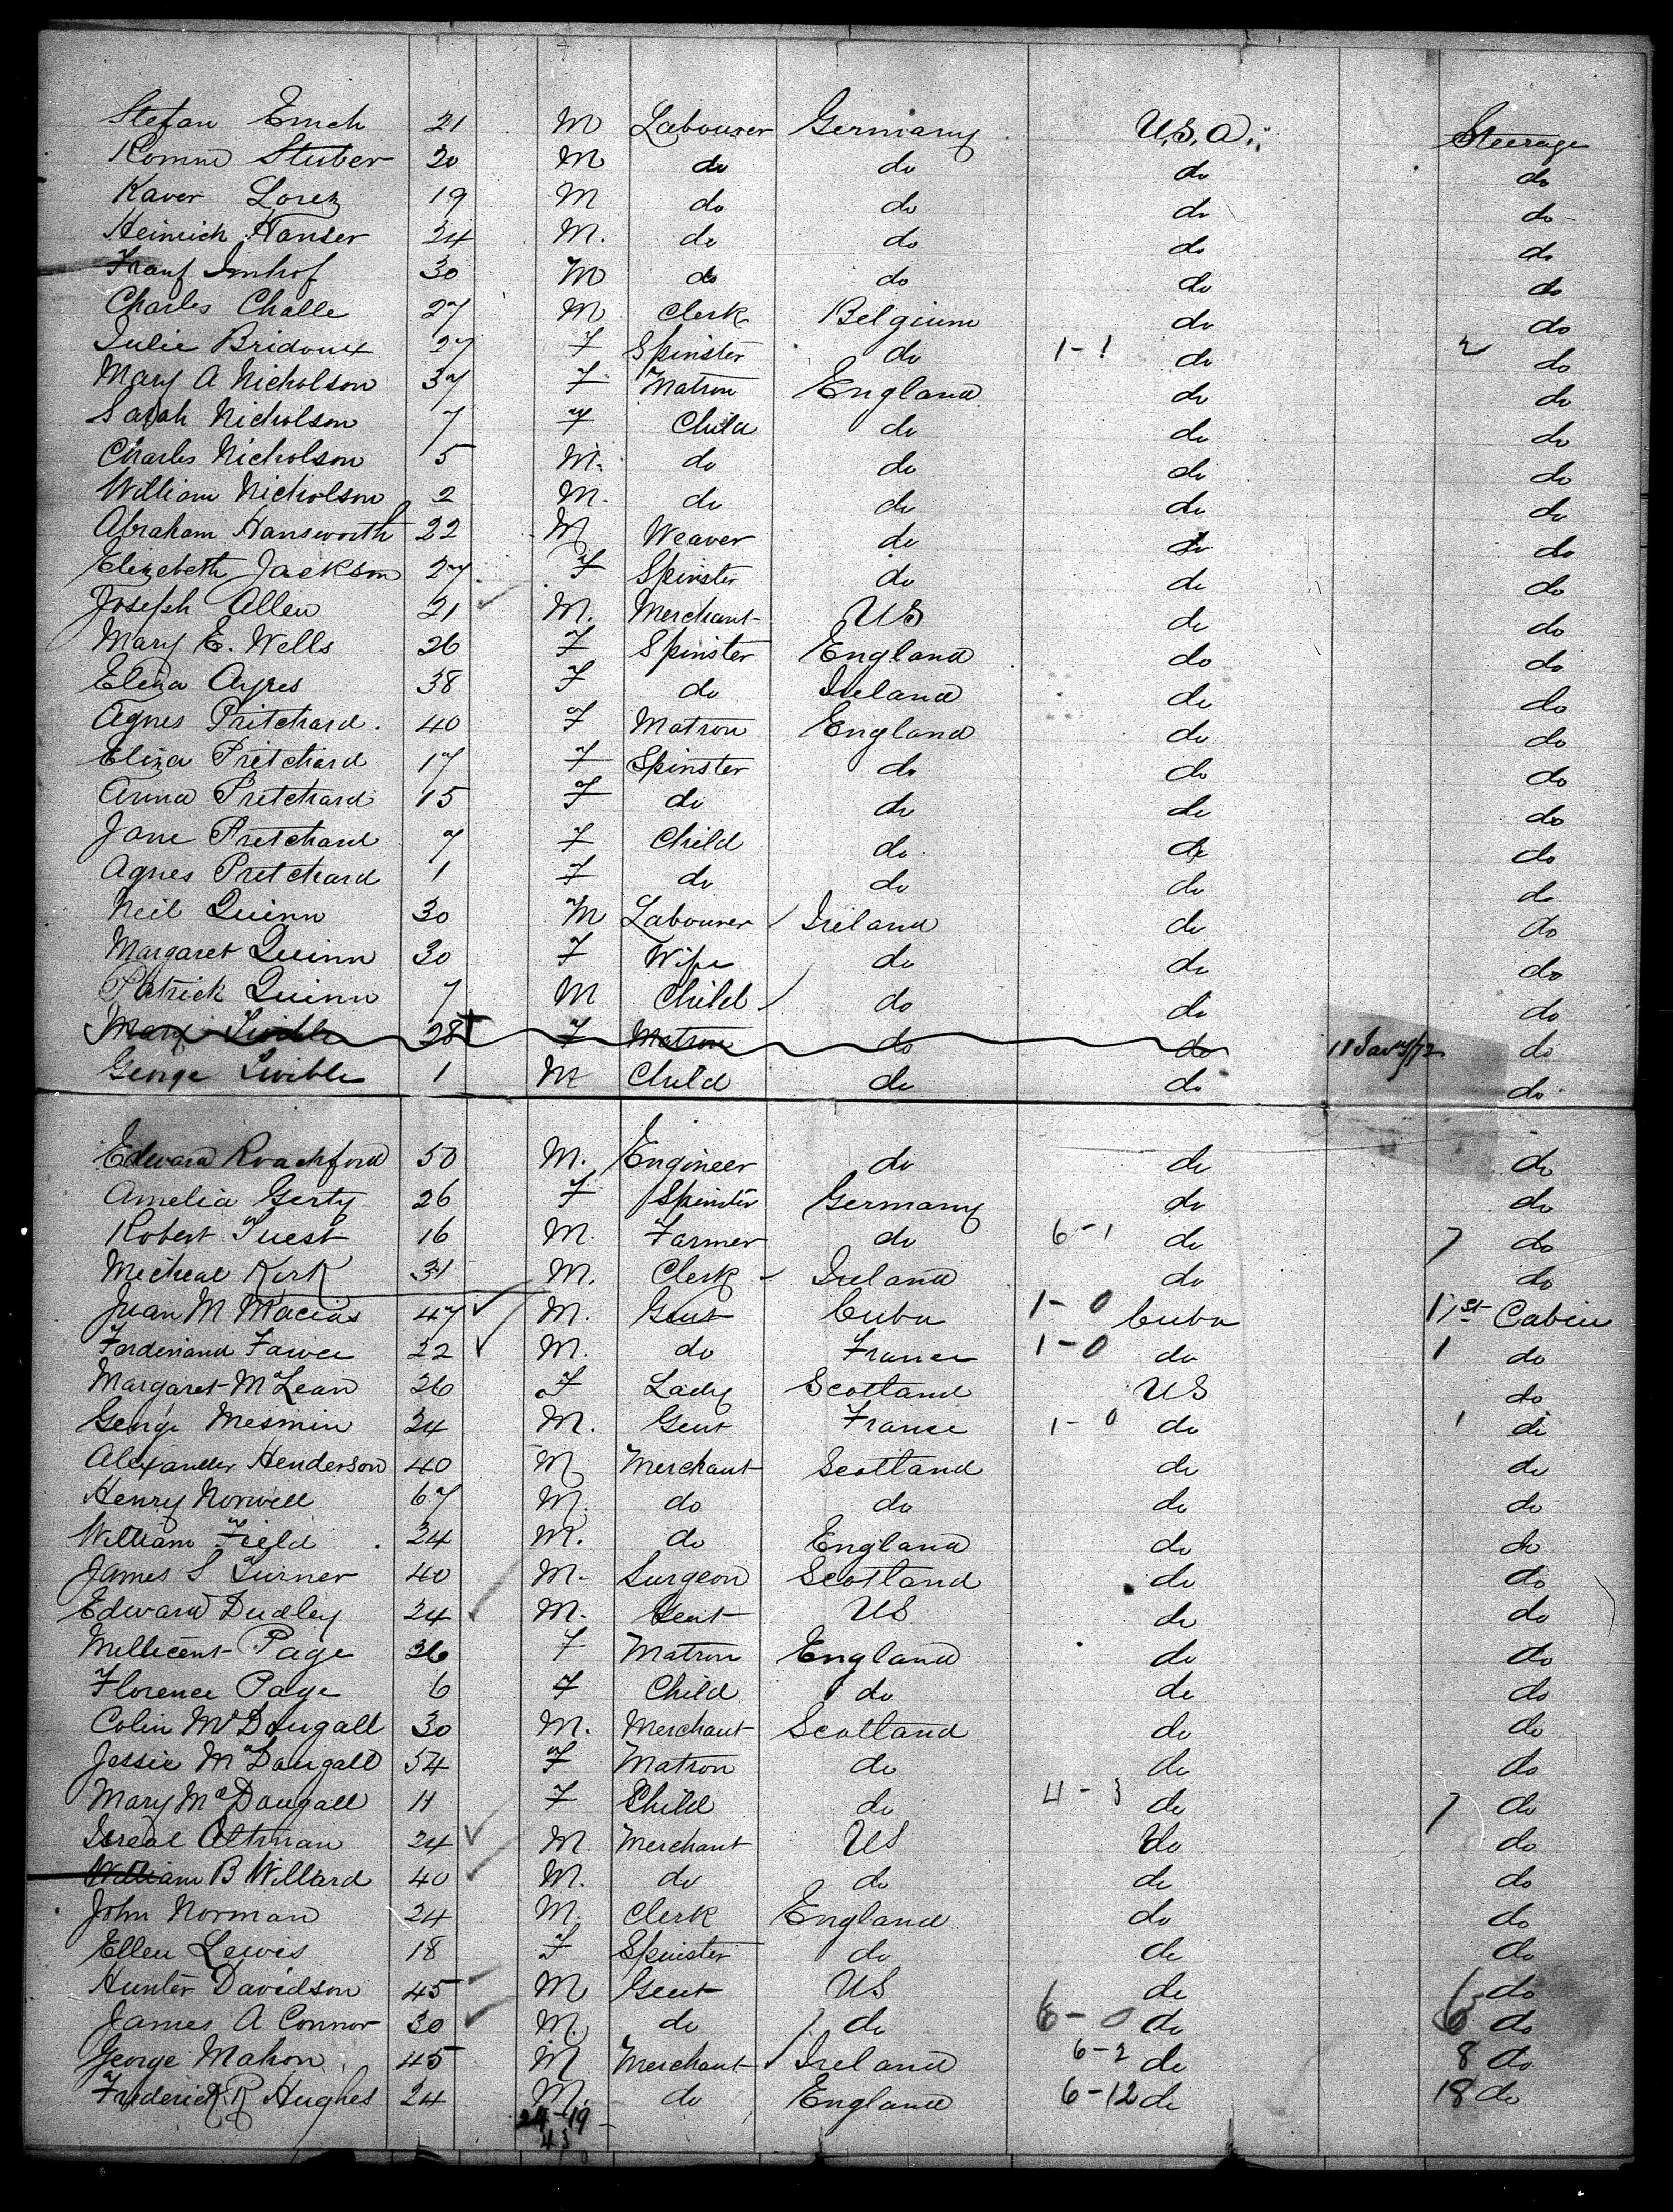 Stefan Emch 21 M Labourer Germany U.S.A. Steerage
Romm Stuber 20 M do do do do
Xaver Lorez 19 M do do do do
Heinrich Hanser 24 M. do do do do
Franz Imhof 30 M do do do do
Charles Challe 27 M Clerk Belgium do do
Julie Bridoux 27 F Spinster do 1-1 do 2 do
Mary A Nicholson 37 F Matron England do do
Sarah Nicholson 7 F Child do do do
Charles Nicholson 5 M. do do do do
William Nicholson 2 M. do do do do
Abraham Hansworth 22 M Weaver do do do
Elizebeth Jackson 27 F Spinster do do do
Joseph Allen 21 M. Merchant US do do
Mary E. Wells 26 F Spinster England do do
Eliza Ayres 38 F do Ireland do do
Agnes Pritchard. 40 F Matron England do do
Eliza Pritchard 17 F Spinster do do do
Anna Pritchard 15 F do do do do
Jane Pritchard 7 F Child do do do
Agnes Pritchard 1 F do do do do
Neil Quinn 30 M Labourer Ireland do do
Margaret Quinn 30 F Wife do do do
Patrick Quinn 7 M Child do do do
Mary 28 F Matron do do 11 Jany/72 do
George 1 M Child do do do
Edward Roachford 50 M. Engineer do do do
Amelia Gerty 26 F Spinster Germany do do
Robert Tuest 16 M. Farmer do 6-1 do 7 do
Micheal Kirk 31 M. Clerk Ireland do do
Juan M Macias 47 M. Gent Cuba 1-0 Cuba 1 1st Cabin
Ferdinand 22 M. do France 1-0 do 1 do
Margaret McLean 26 F Lady Scotland US do
George Mesmin 24 M. Gent France 1-0 do 1 do
Alexander Henderson 40 M Merchant Scotland do do
Henry Norwell 67 M. do do do do
William Field 24 M. do England do do
James S Turner 40 M. Surgeon Scotland do do
Edward Dudley 24 M. Gent US do do
Millicent Page 36 F Matron England do do
Florence Page 6 F Child do do do
Colin McDougall 30 M. Merchant Scotland do do
Jessie McDougall 54 F Matron do do do
Mary McDougall 11 F Child do 4-3 do 7 do
Isreal Altman 24 M. Merchant US do do
William B Willard 40 M. do do do do
John Norman 24 M. Clerk England do do
Ellen Lewis 18 F Spinster do do do
Hunter Davidson 45 M Gent US do do
James A Connor 30 M. do do 6-0 do 6 do
George Mahon 45 M Merchant Ireland 6-2 do 8 do
Frederick R Hughes 24 M. do England 6-12 do 18 do
24-19
43